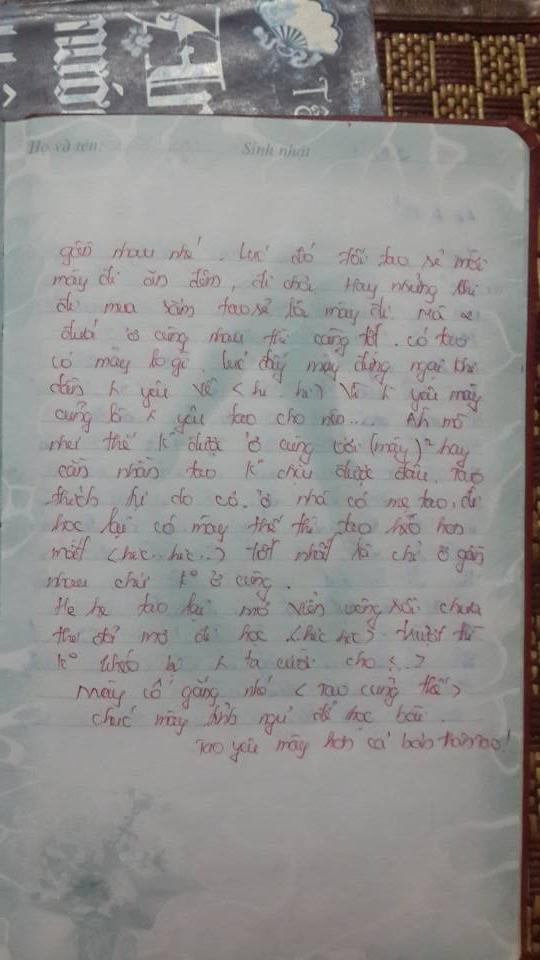 Tê
Họ và tên: Sinh nhật
gần nhau nhé. Lúc đó tối tao sẽ mời
mày đi ăn đêm, đi chơi. Hay những khi
đi mua sắm tao sẽ lôi mày đi. Mà
được ở cùng nhau thì càng tốt. có tao
có mày lo gì. lúc đấy mày đừng ngại khi
dẫn n yêu về < hi hi > Vì n yêu mày
cũng là n yêu tao cho nên.... Ah mà
như thế k° được ở cùng với (mày)² hay
cằn nhằn tao k° chịu được đâu. Tao
thích tự do cơ. ở nhà có mẹ tao, đi
học lại có mày thế thì tao héo hon
mất < hic.. hic..> tốt nhất là chỉ ở gần
nhau chứ k° ở cùng.
He he tao lại mơ viển vông rồi chưa
thi đã mơ đi học <hic hic> trượt thì
k° khéo lại n ta cười cho <..>
Mày cố gắng nhé < Tao cũng thế >
chúc mày tỉnh ngủ để học bài.
Tao yêu mày hơn cả bản thân tao!